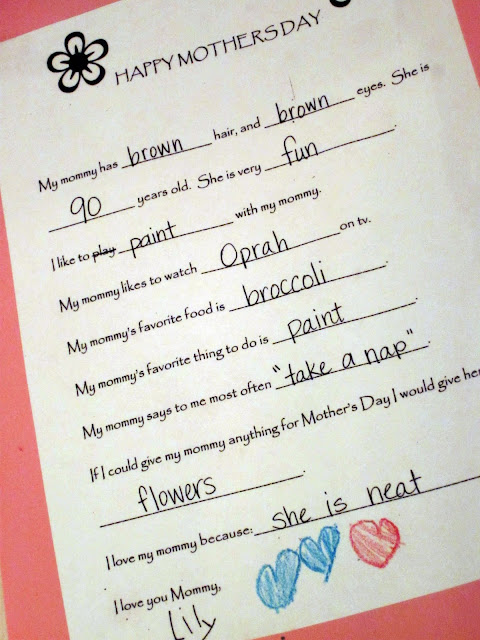 HAPPY MOTHERS DAY
My mommy has brown hair, and brown eyes. She is
90 years old. She is very fun.
I like to play paint with my mommy.
My mommy likes to watch Oprah on tv.
My mommy's favorite food is broccoli.
My mommy's favorite thing to do is paint.
My mommy says to me most often "take a nap".
If I could give my mommy anything for Mother's Day I would give her
flowers.
I love my mommy because: she is neat
I love you Mommy,
Lily